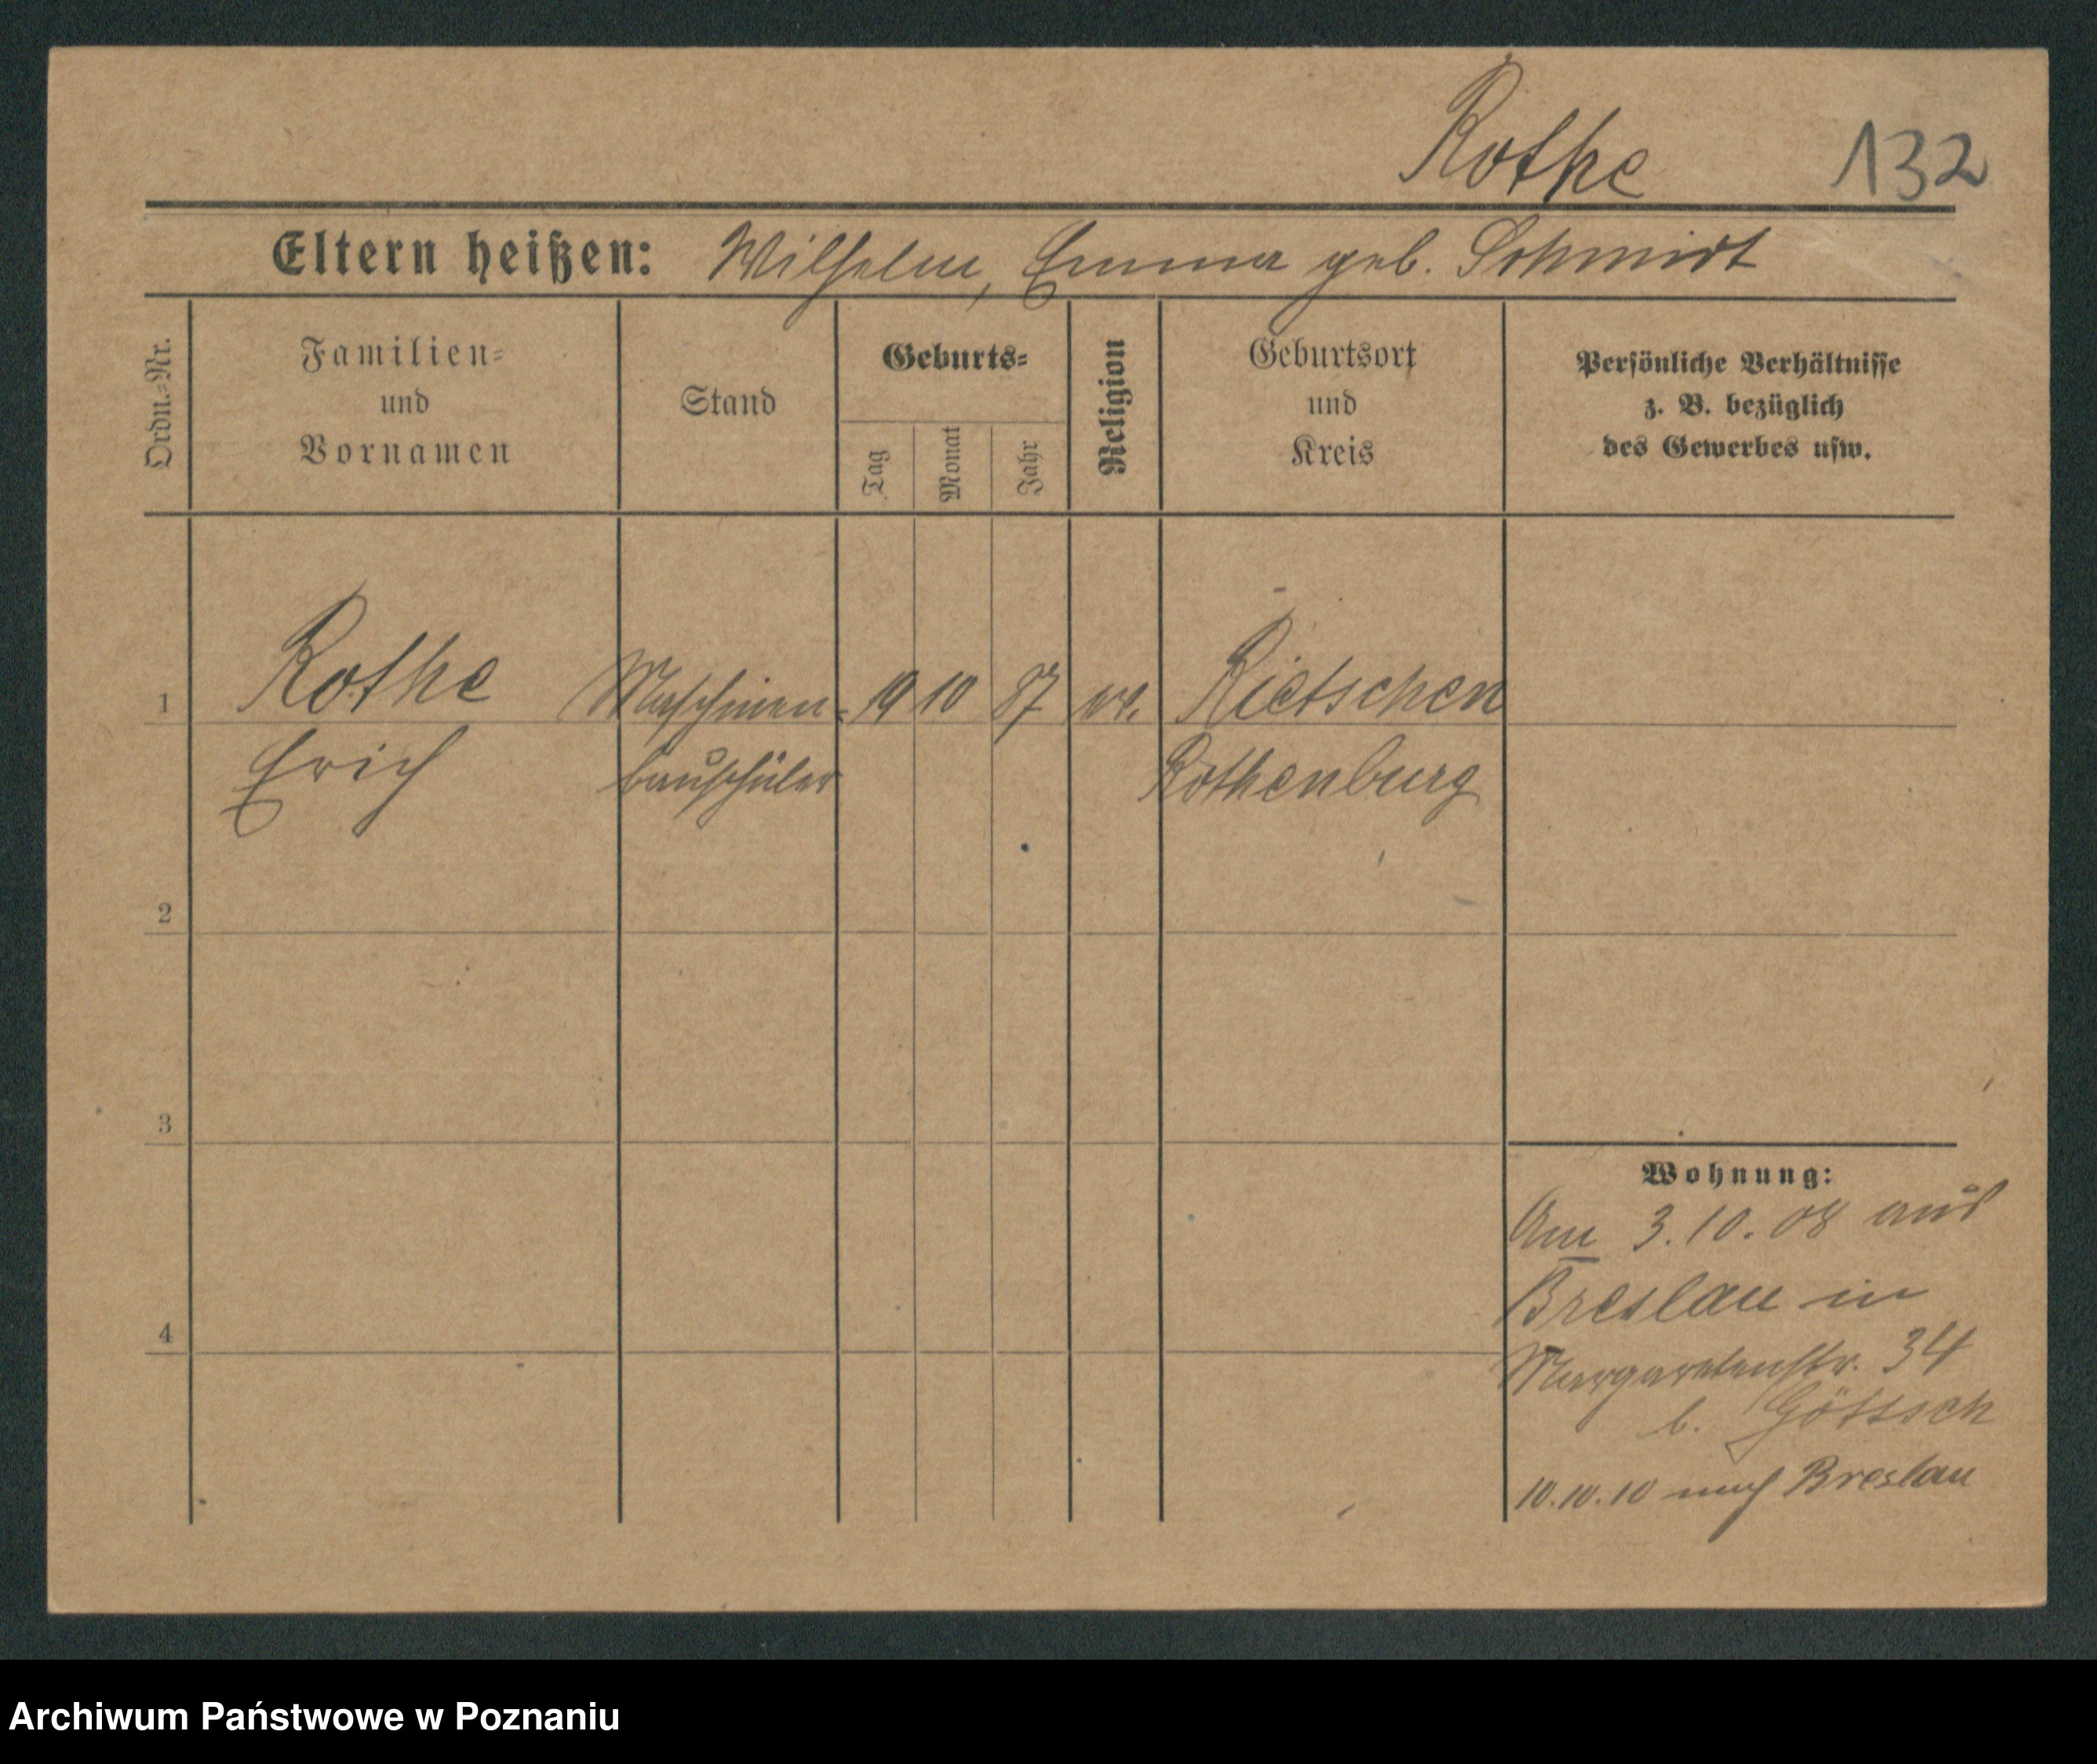 Rothe 132
Eltern heißen: Wilhelm, Emma geb. Schmidt
Ordn.=Nr.
Familien=
und
Vornamen
Stand
Geburts=
Tag
Monat
Jahr
Religion
Geburtsort
und
Kreis
Persönliche Verhältnisse
z. B. bezüglich
des Gewerbes usw.
1 Rothe Maschinen= 19 10 87 ev. Rietschen
Erich bauschüler Rothenburg
2
3
4
Wohnung:
Am 3.10.08 aus
Breslau in
Margaretenstr. 34
b. Göttsch
10.10.10 nach Breslau
Archiwum Państwowe w Poznaniu